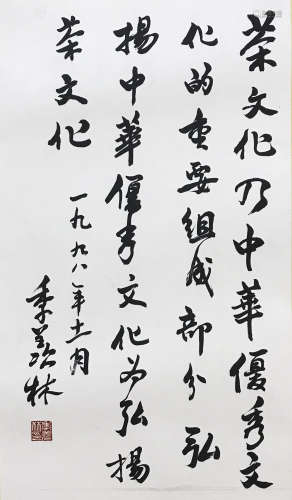 茶文化乃中華優秀文
化的重要組成部分弘
揚中華優秀文化必弘揚
茶文化
一九九八年十一月
季羡林